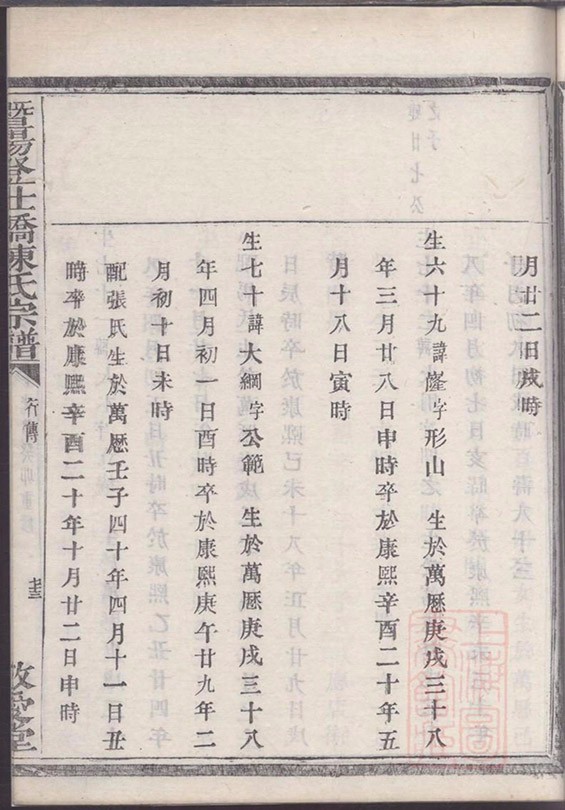 月廿二日戌時
生六十九諱　字形山　生於萬歷庚戌三十八
年三月廿八日申時卒於康熙辛酉二十年五
月十八日寅時
生七十諱大綱字公範　生於萬歷庚戌三十八
年四月初一日酉時卒於康熙庚午廿九年二
月初十日未時
配張氏生於萬歷壬子四十年四月十一日丑
時卒於康熙辛酉二十年十月廿二日申時
暨陽登仕橋陳氏宗譜
行傳
敬愛堂